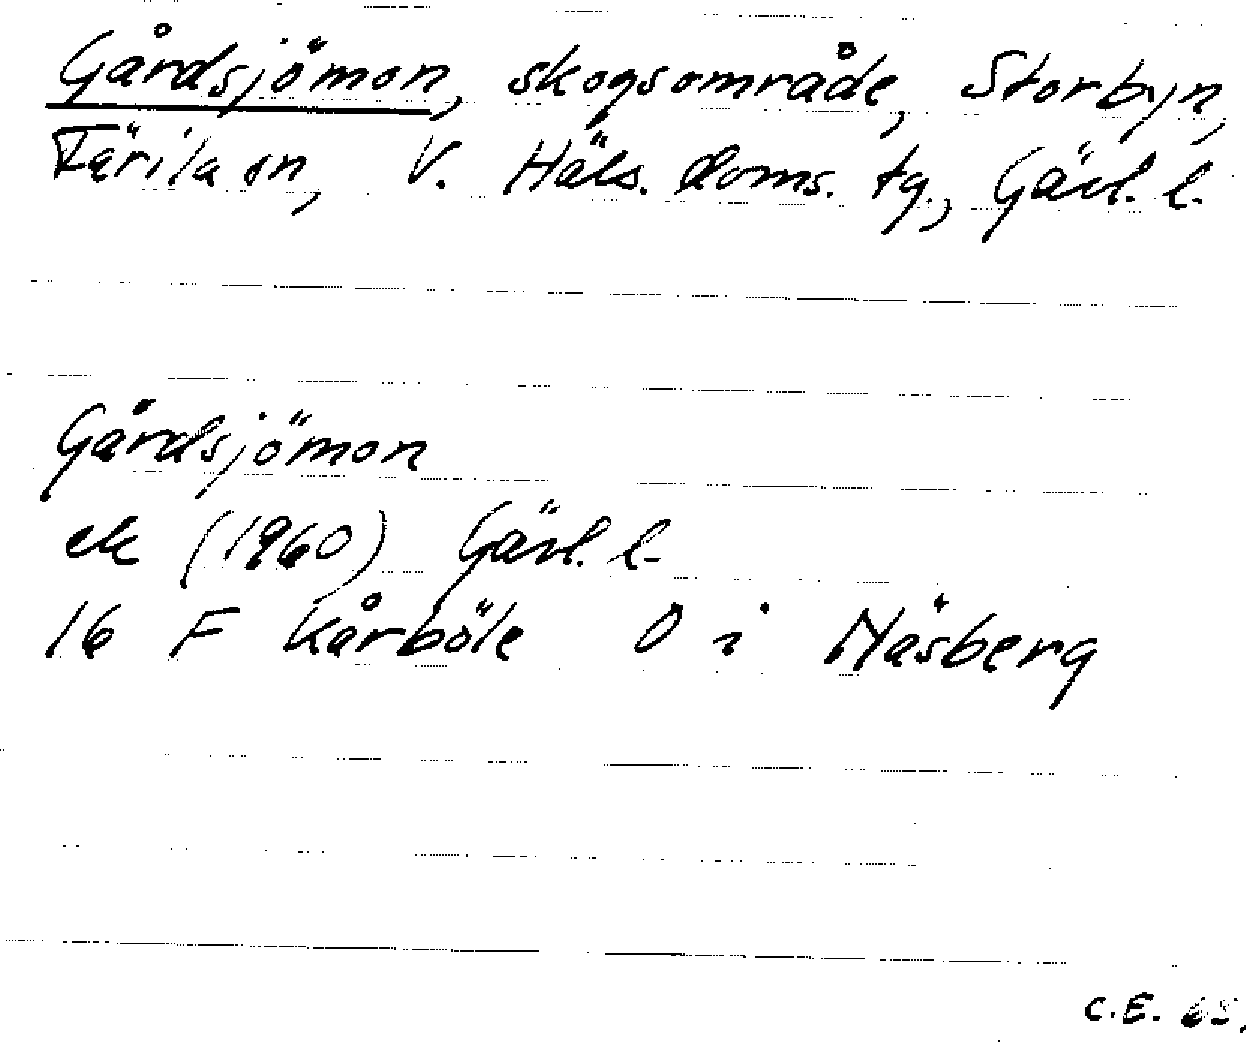 Gårdsjömon, skogsområde, Storbyn,
Färila sn, V. Häls. doms. tg., Gävl. l.
Gårdsjömon
ek (1960) Gävl. l.
16 F Kårböle O i Näsberg
C.E. 65.